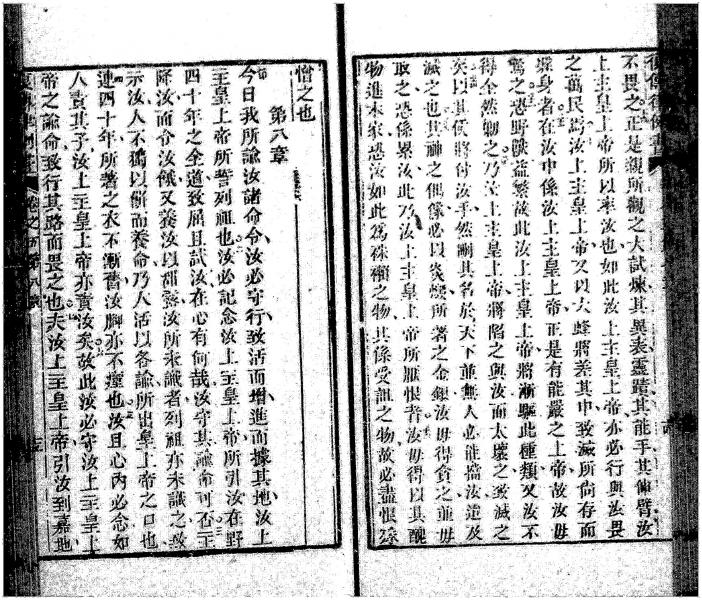 不畏之正是親所觀之大試煉其異表靈蹟其能手其伸臂汝
上主皇上帝所以率汝也如此汝上主皇上帝亦必行與汝畏
之萬民焉汝上主皇上帝又以大蜂將差其中致滅所尚存而
身者在汝中係汝上主皇上帝正是有能嚴之上帝故汝毋
驚之恐野獸益繁故此汝上主皇上帝將漸驅此種類又汝不
得全然之乃汝上主皇上帝將陷之與汝而太壞之致滅之
矣以其將付汝手然其名於天下並無人必能擋汝迨及
滅之也其神之偶像必以炎燬所著之金銀汝毋得貪之並毋
取之恐係累汝此乃汝上主皇上帝所厭恨者汝毋得以其醜
物進本家恐汝如此為之物其係受詛之物故必盡恨
憎之也
第八章
今日我所諭汝諸命令汝必守行致活而增進而據其地汝上
主皇上帝所誓列祖也汝必記念汝上主皇上帝所引汝在野
四十年之全道致屈且試汝在心有何哉汝守其諭命可否上
降汝而令汝餓又養汝以所未識者列祖亦未識之致
示汝人不獨以餅而養命乃人活以各諭所出皇上帝之口也
連四十年所著之衣不漸舊汝腳亦不瘇也汝且心內必念如
人責其子汝上主皇上帝亦責汝矣故此汝必守汝上主皇上
帝之諭命致行其路而畏之也夫汝上主皇上帝引汝到嘉地
卷之五第八章